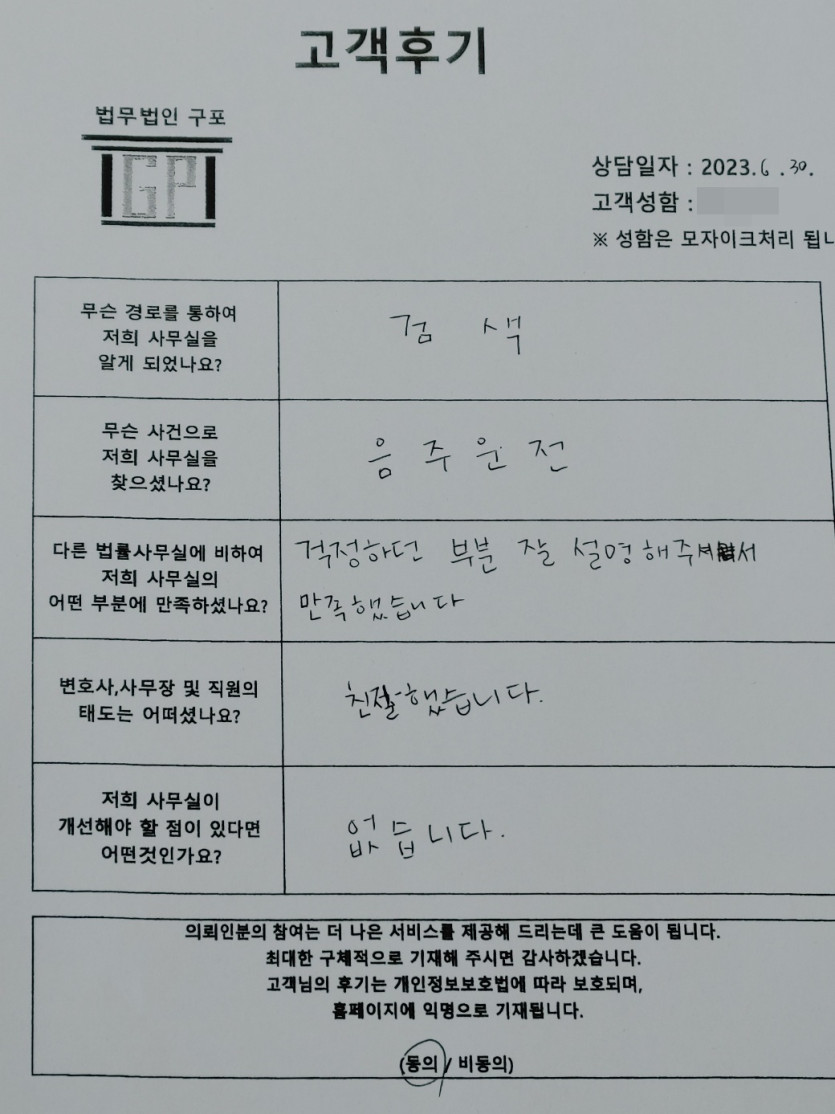 고객후기
법무법인 구포
GP
상담일자 : 2023.6.30.
고객성함 :
※ 성함은 모자이크처리 됩니
무슨 경로를 통하여
저희 사무실을
알게 되었나요?
검색
무슨 사건으로
저희 사무실을
찾으셨나요?
음주운전
다른 법률사무실에 비하여
저희 사무실의
어떤 부분에 만족하셨나요?
걱정하던 부분 잘 설명해주셔서
만족했습니다
변호사,사무장 및 직원의
태도는 어떠셨나요?
친절했습니다.
저희 사무실이
개선해야 할 점이 있다면
어떤것인가요?
없습니다.
의뢰인분의 참여는 더 나은 서비스를 제공해 드리는데 큰 도움이 됩니다.
최대한 구체적으로 기재해 주시면 감사하겠습니다.
고객님의 후기는 개인정보보호법에 따라 보호되며,
홈페이지에 익명으로 기재됩니다.
(동의 / 비동의)